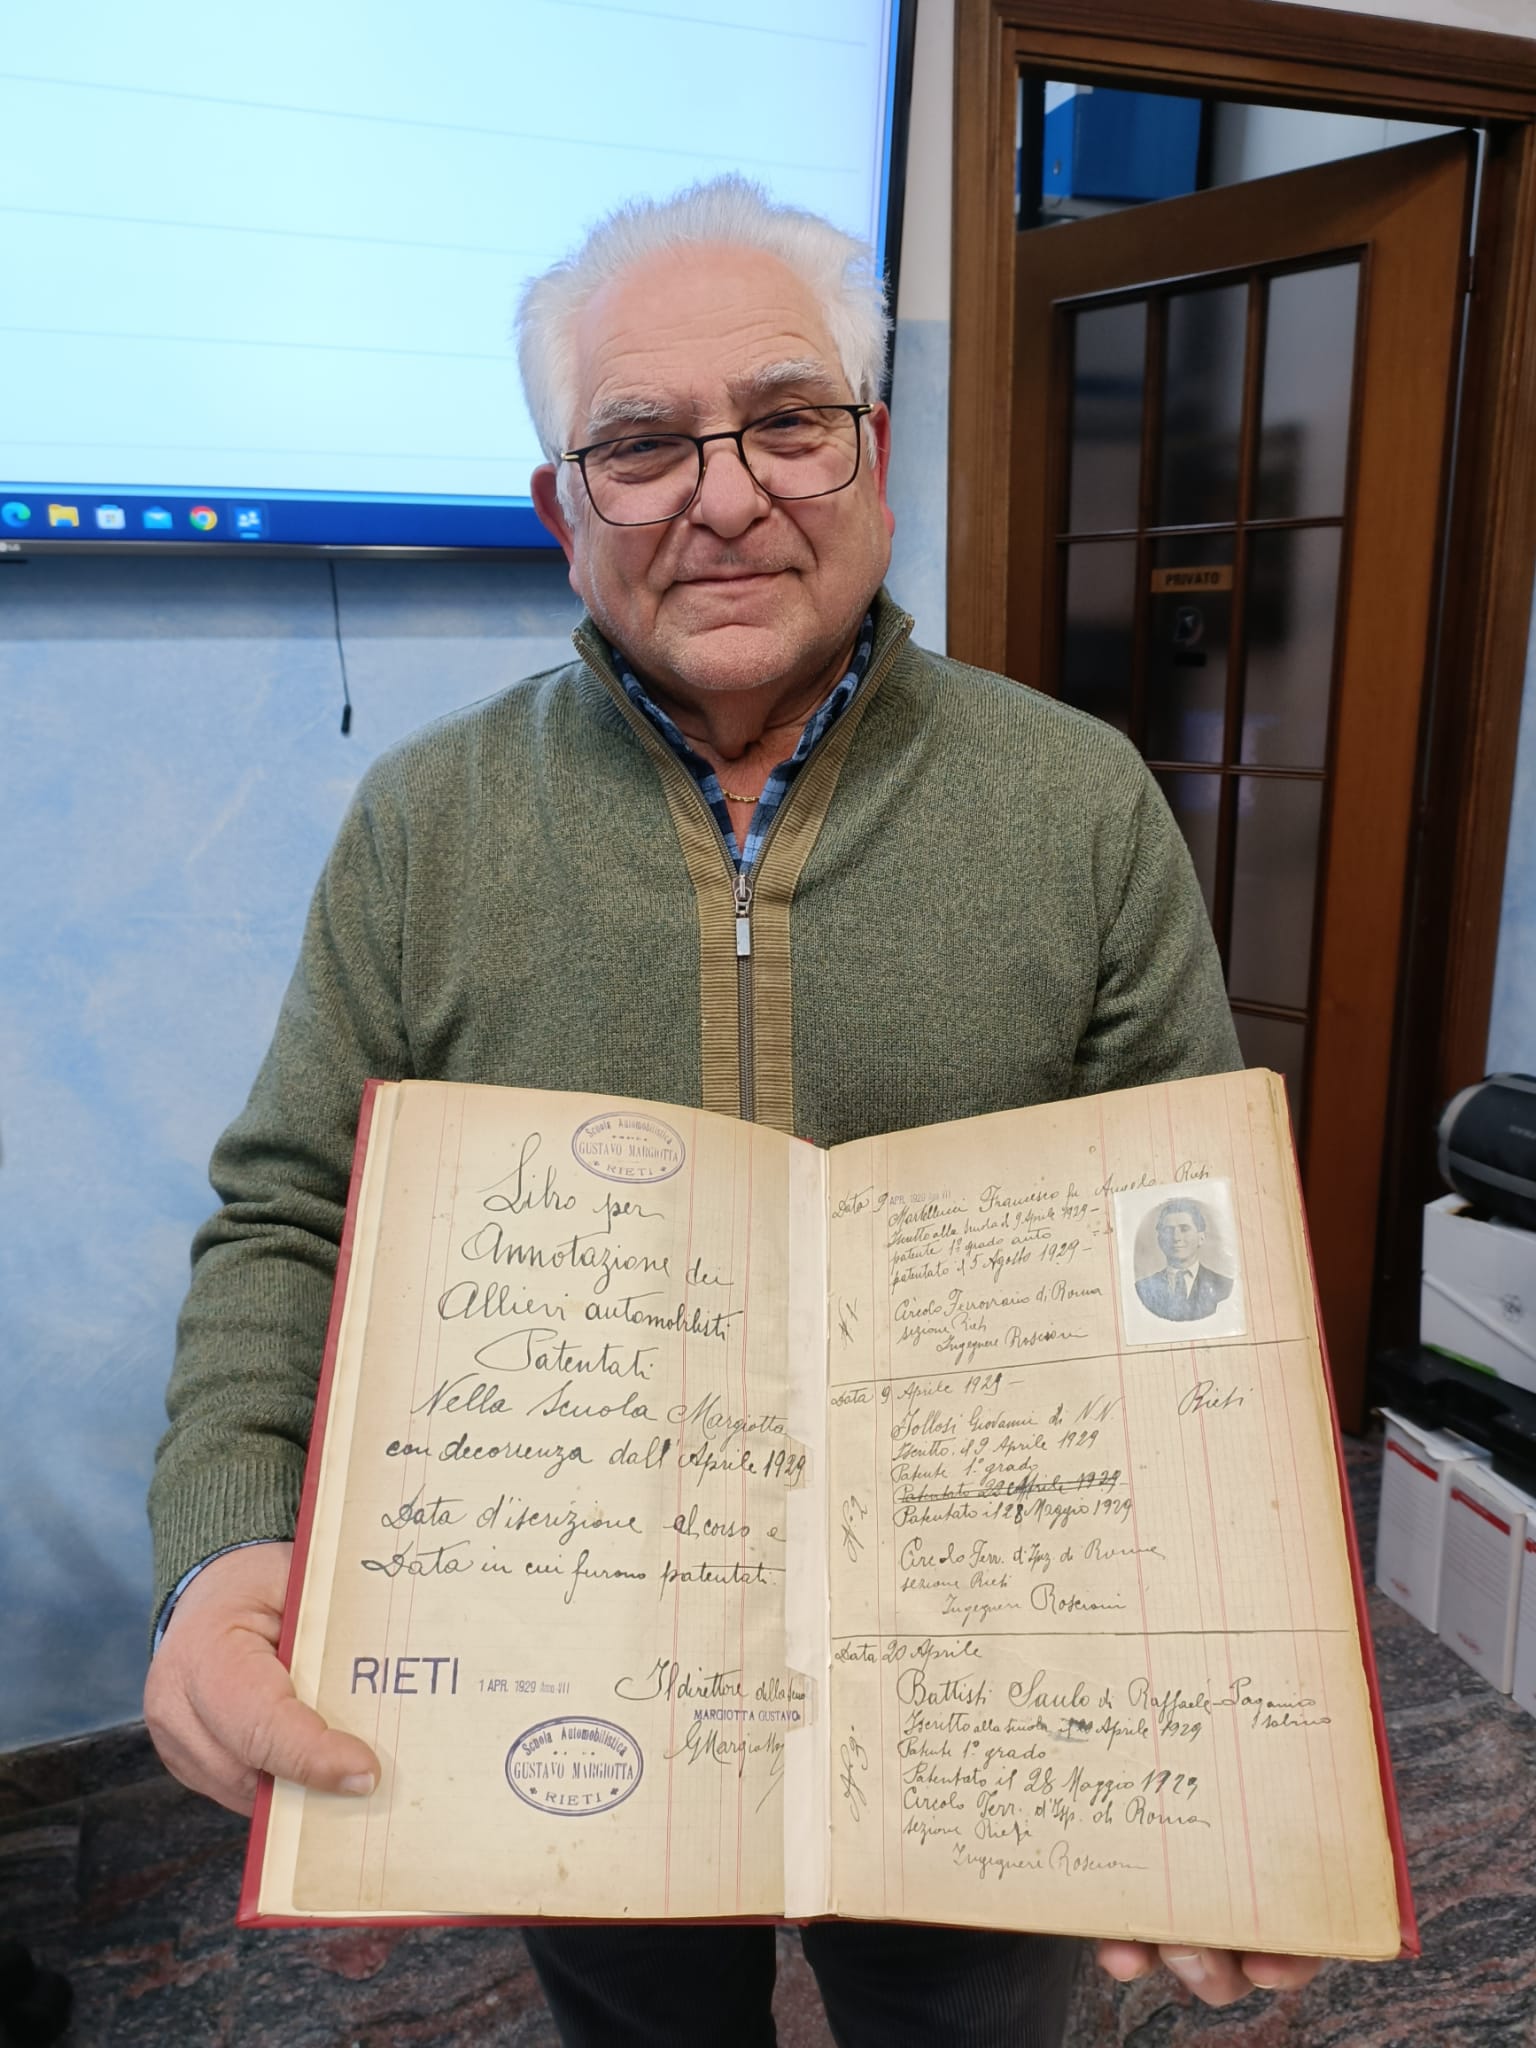 LG
PRIVATO
Scuola Automobilistica
GUSTAVO MARGIOTTA
RIETI
Libro per
Annotazione dei
Allievi automobilisti
Patentati
Nella Scuola Margiotta
con decorrenza dall' Aprile 1929
Data d'iscrizione al corso e
Data in cui furono patentati.
RIETI 1 APR. 1929 Anno VII
Il direttore della
MARGIOTTA GUSTAVO
GMargiotta
Scuola Automobilistica
GUSTAVO MARGIOTTA
RIETI
Data 9 APR. 1929 Anno VII
Martellucci Francesco fu Angelo Rieti
Iscritto alla scuola il 9 Aprile 1929 -
patente 1º grado auto
patentato il 5 Agosto 1929 -
Circolo Ferroviario di Roma
sezione Rieti
Ingegnere Roscioni
N. 1
Data 9 Aprile 1929 -
Giovanni di N.N. Rieti
Iscritto il 9 Aprile 1929
Patente 1º grado
Patentato 29 Aprile 1929
Patentato il 28 Maggio 1929
Circolo Ferr. d'Isp. di Roma
sezione Rieti
Ingegnere Roscioni
N. 2
Data 20 Aprile
Battisti Saulo di Raffaele - Paganico
Sabino
Iscritto alla scuola il 20 Aprile 1929
Patente 1º grado
Patentato il 28 Maggio 1929
Circolo Ferr. d'Isp. di Roma
sezione Rieti
Ingegnere Roscioni